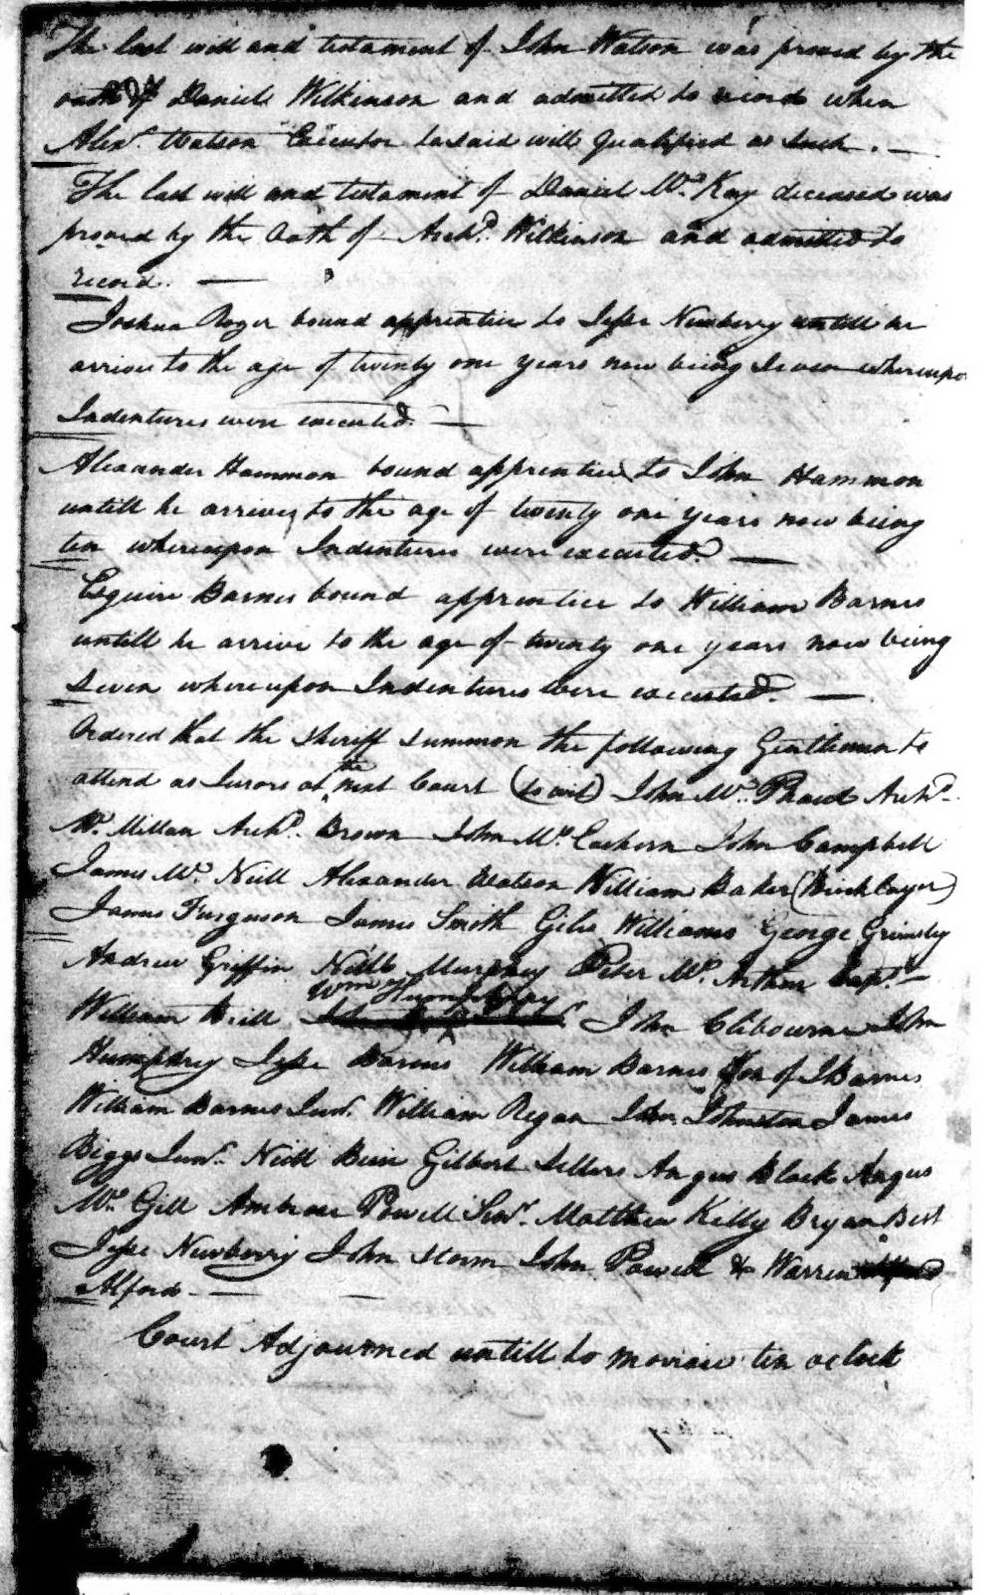 The last will and testament of John Watson was proved by the
oath of Daniel Wilkinson and admitted to record when
Alexr. Watson Executor to said will qualified as Such. —
The last will and testament of Daniel Mc. Kay deceased was
proved by the Oath of Archd. Wilkinson and admitted to
record. —
Joshua Roger bound apprentice to Jesse Newberry untill he
arrive to the age of twenty one years now being Seven whereupo
Indentures were executed. —
Alexander Hammon bound apprentice to John Hammon
untill he arrives to the age of twenty one years now being
ten whereupon Indentures were executed. —
Esquire Barnes bound apprentice to William Barnes
untill he arrive to the age of twenty one years now being
Seven whereupon Indentures were executed. —
Ordered that the Sheriff Summon the following Gentlemen to
attend as Jurors at the next Court (to wit) John Mc. Phaul Archd.
Mc. Millan Archd. Brown John Mc. Eachern John Campbell
James Mc. Neill Alexander Watson William Baker (Bricklayer)
James Furguson James Smith Giles Williams George Grimsley
Andrew Griffin Neill Murphey Peter Mc. Arthur Capt.
Wm. Humphrey
William Neill John Clibourne John
Humphry Jesse Barnes William Barnes Son of J Barnes
William Barnes Junr. William Regan John Johnston James
Biggs Junr. Neill Buie Gilbert Sellers Angus Black Angus
Mc. Gill Ambrose Powell Senr. Matthew Kelly Bryan Best
Jesse Newberry John Storm John Powell & Warren
Alford —
Court Adjourned untill to morrow ten oclock